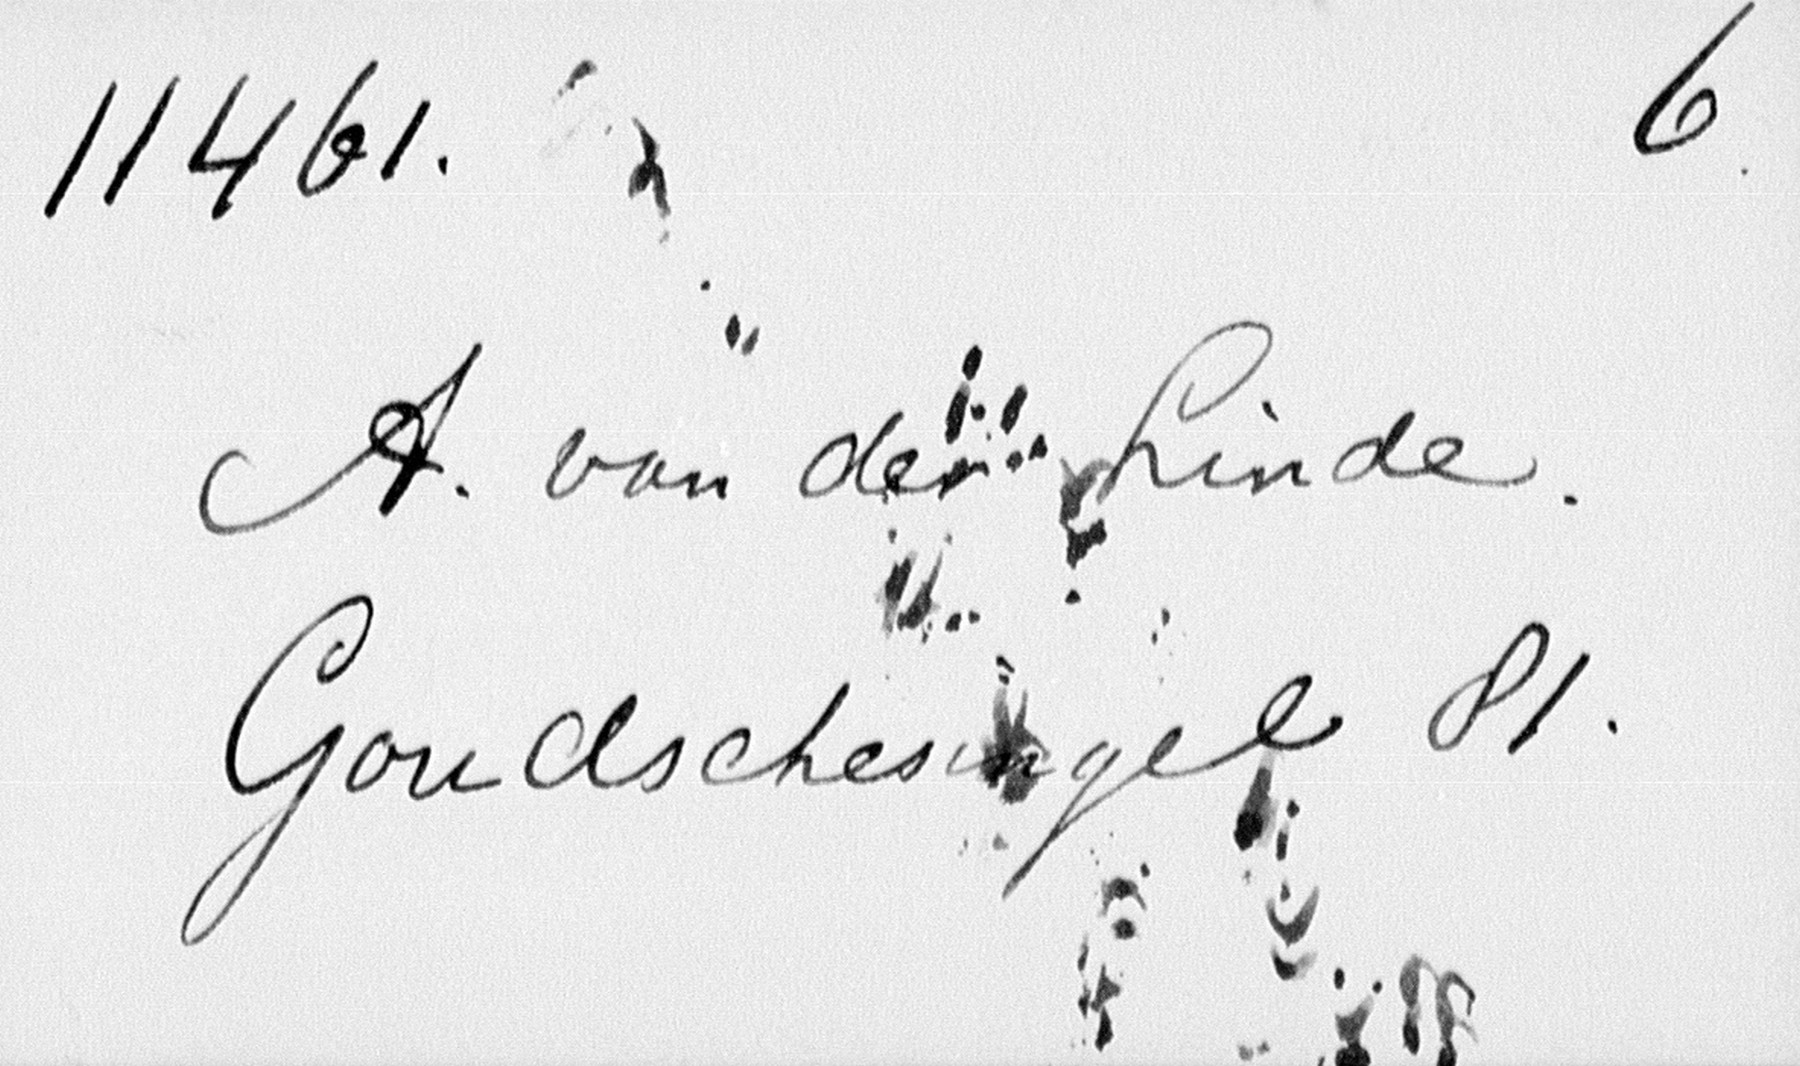 11461. 6.
A. van der Linde.
Goudschesingel 81.